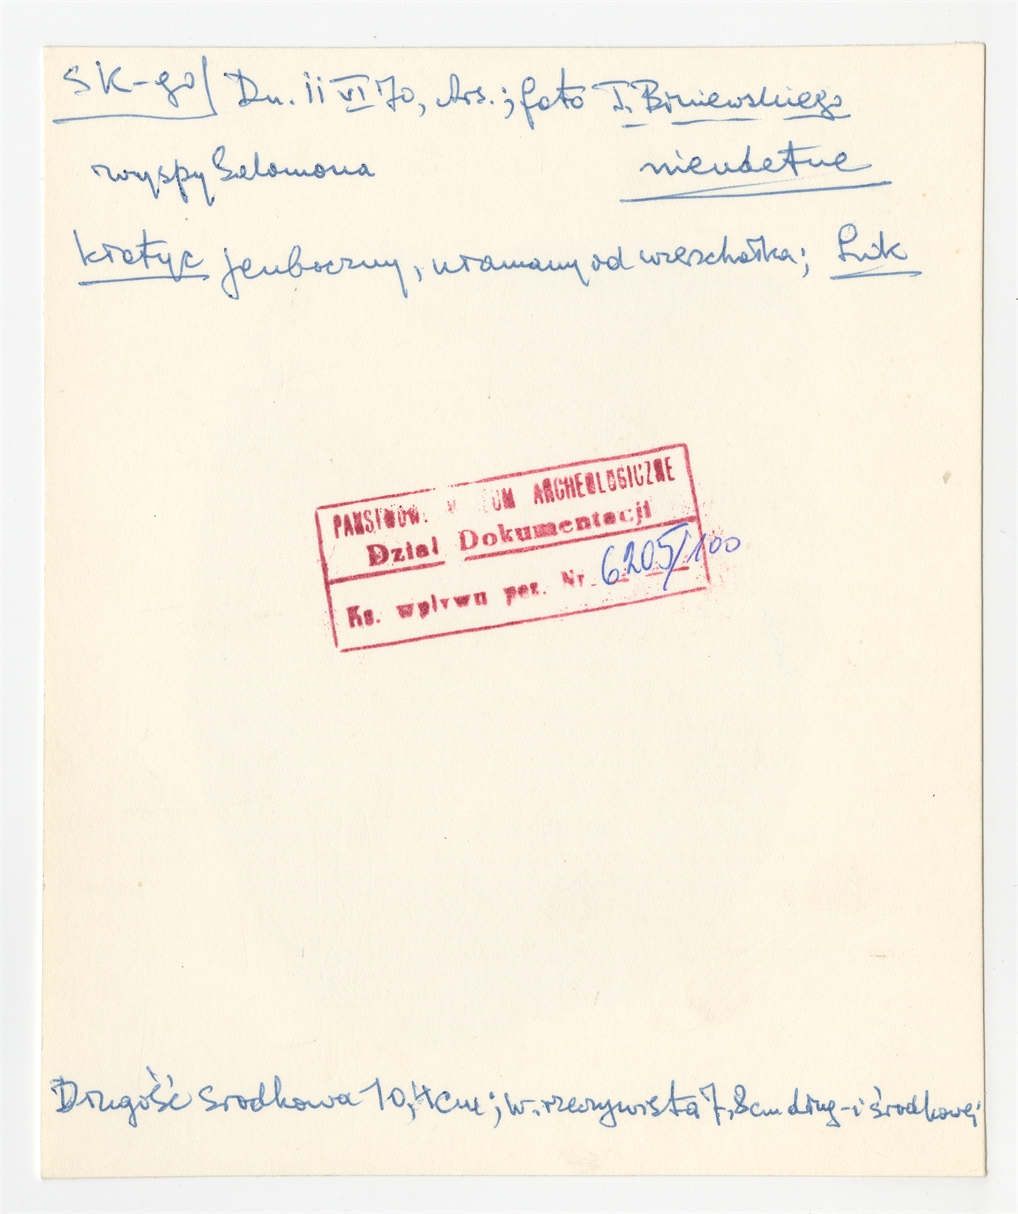 SK-go/ Dn. 11 VI 70, Ars.; foto T. Biniewskiego
wyspy Salomona nieudatne
kratyc jenboczny, uramany od wierzchołka; Luk
PAŃSTWOW. M UM ARCHEOLOGICZNE
Dział Dokumentacji
Ks. wpływu poz. Nr. 6205/100
Długość srodkowa 10,4cm; w. rzeczywista 7,8cm dług-i środkowej